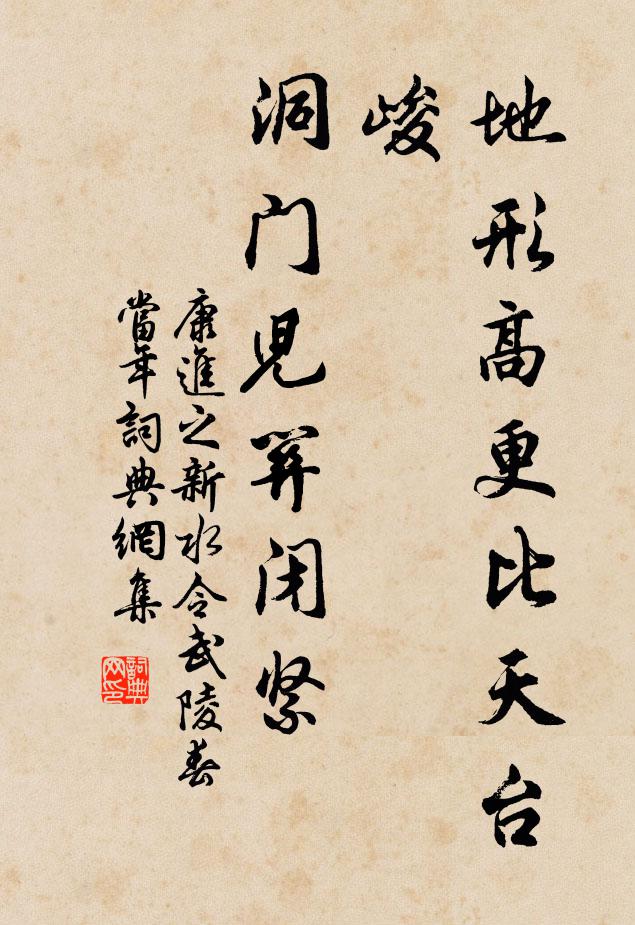 地形高更比天台
峻
洞门児关闭紧
康進之新水令武陵春
當年詞典網集
詞典
网印